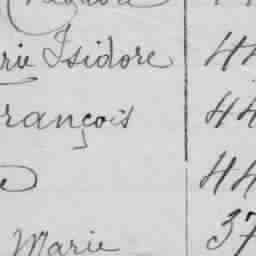 rie Isidore 44
rançois 44
e 44
Marie 37